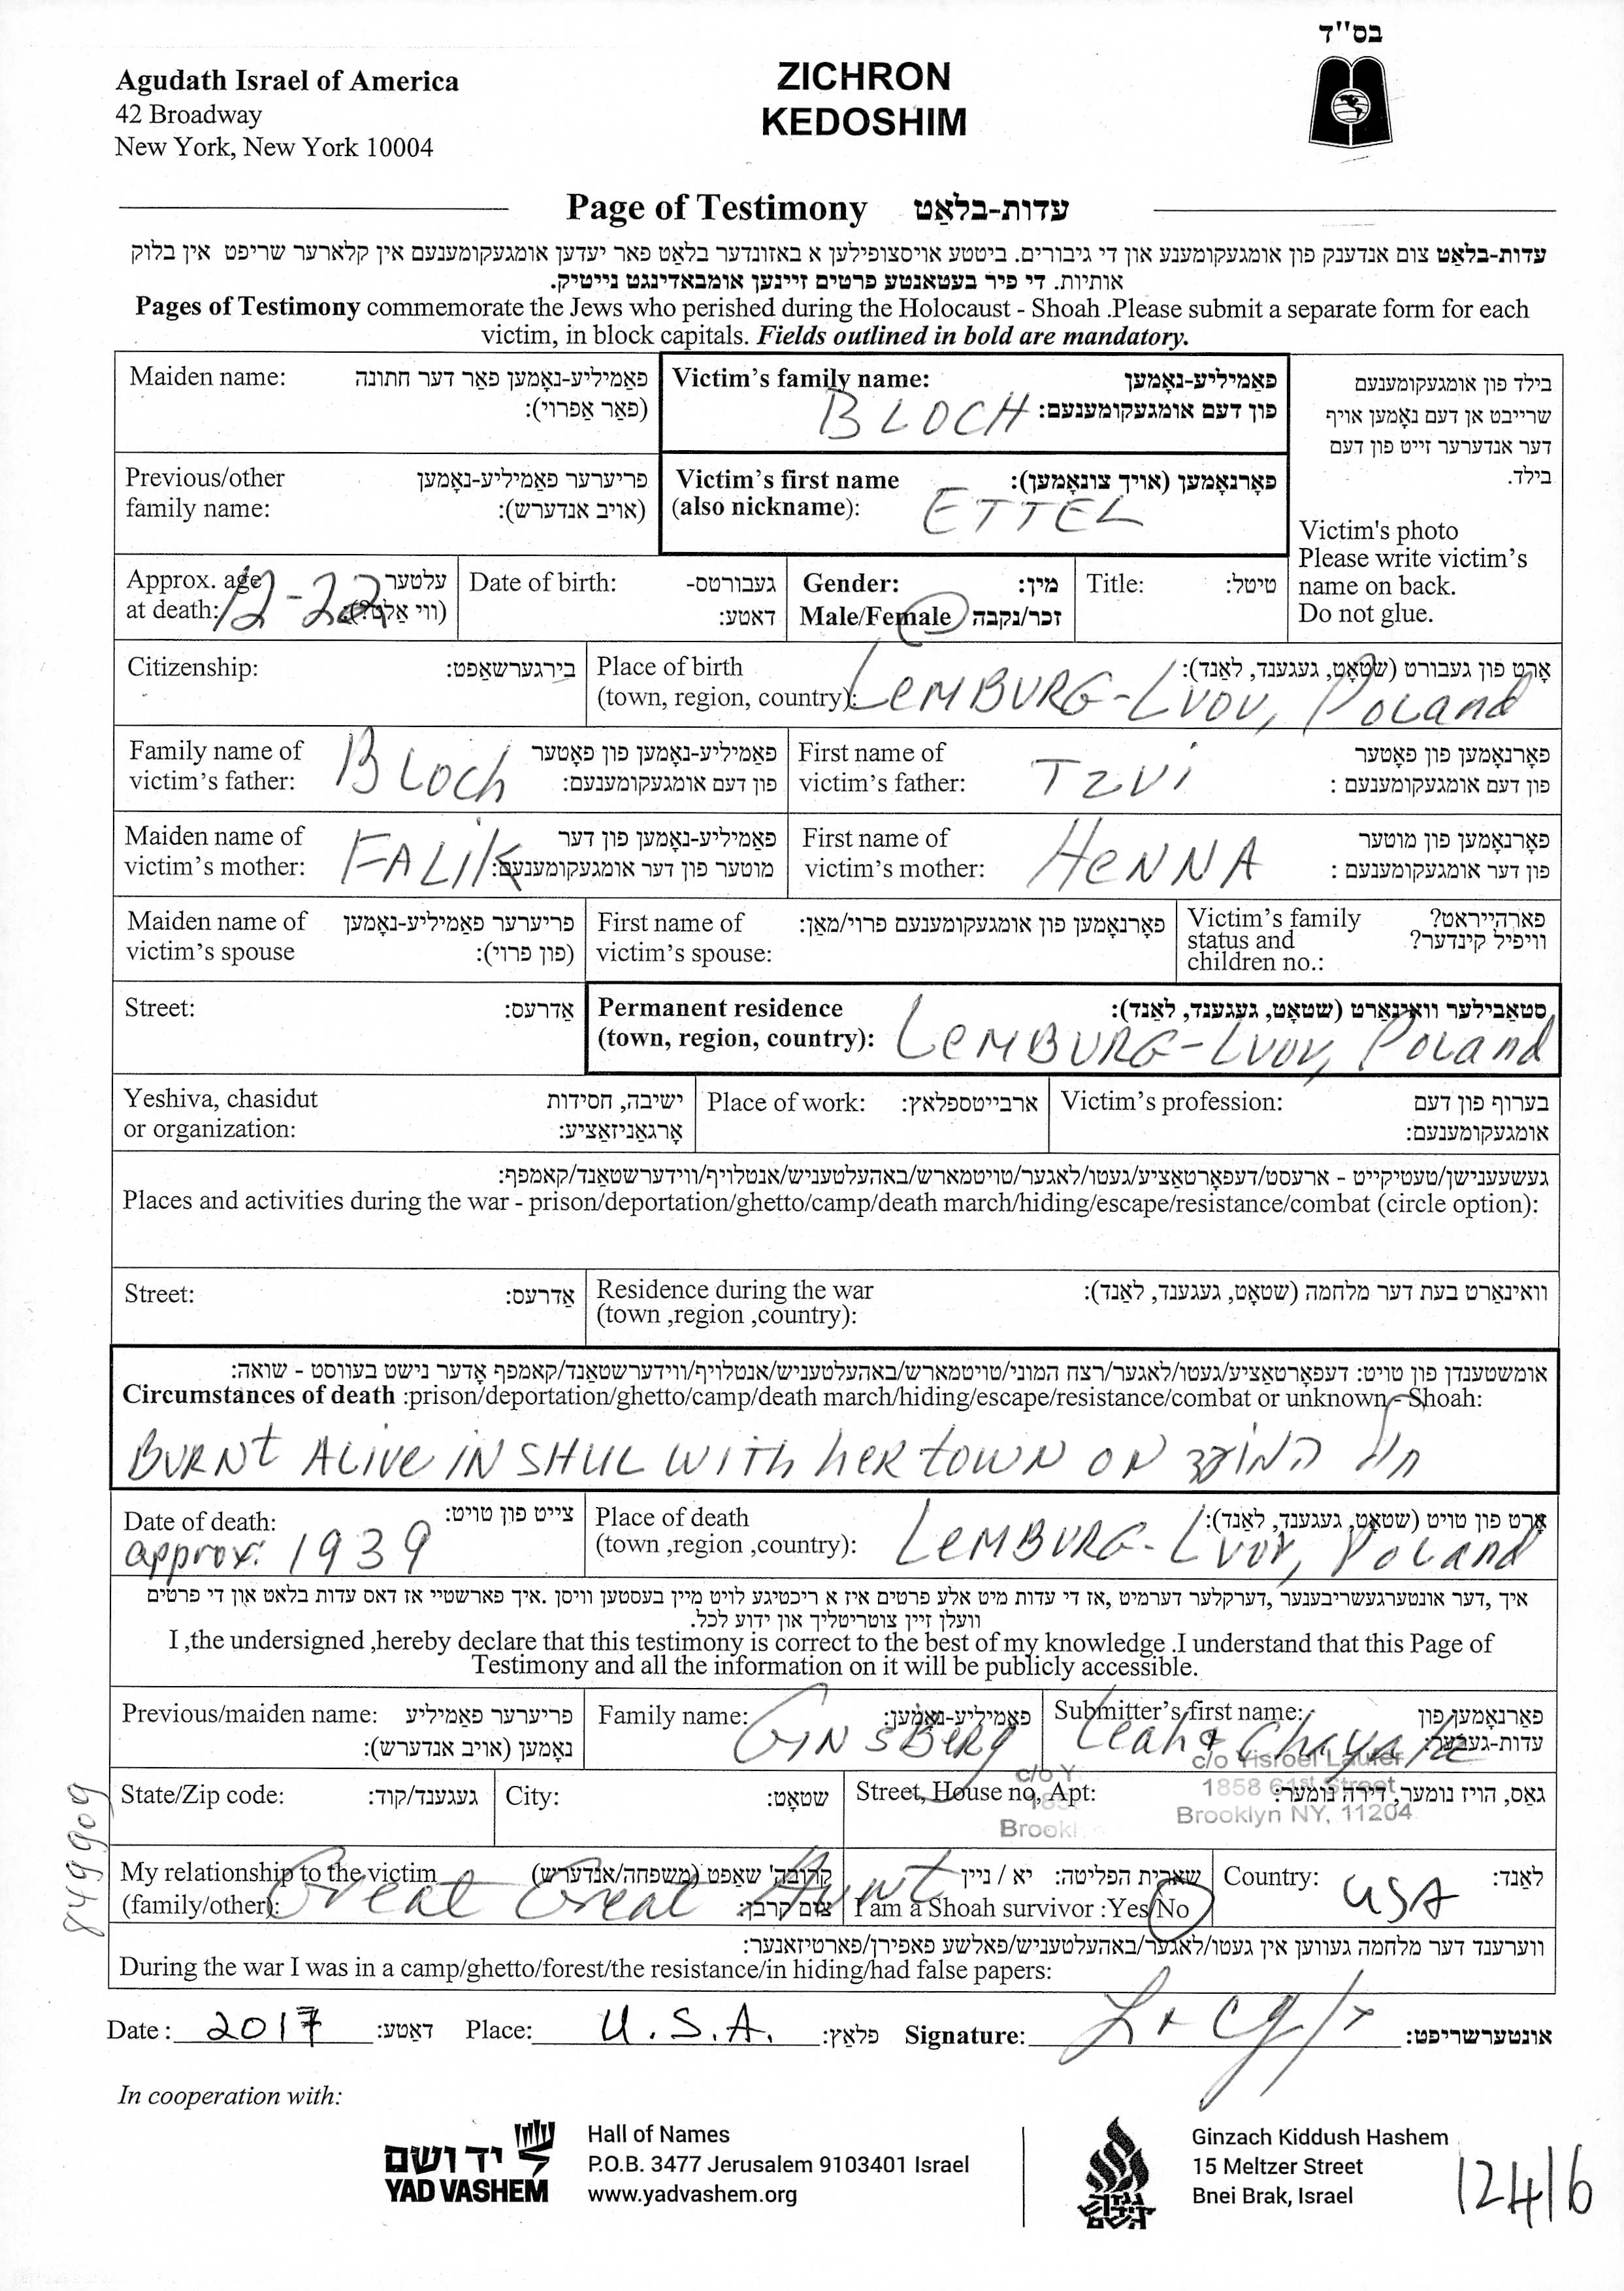 בס"ד
Agudath Israel of America
42 Broadway
New York, New York 10004
ZICHRON
KEDOSHIM
Page of Testimony עדות-בלאַט
עדות-בלאַט צום אנדענק פון אומגעקומענע און די גיבורים. ביטטע אויסצופילען א באזונדער בלאט פאר יעדען אומגעקומענעם אין קלארער שריפט אין בלוק
אותיות. די פיר בעטאנטע פרטים זיינען אומבאדינגט נייטיק.
Pages of Testimony commemorate the Jews who perished during the Holocaust - Shoah .Please submit a separate form for each
victim, in block capitals. Fields outlined in bold are mandatory.
Maiden name: פאַמיליע-נאָמען פאַר דער חתונה
(פאַר אַפרוי):
Victim's family name: פאַמיליע-נאָמען
BLOCH פון דעם אומגעקומענעם:
בילד פון אומגעקומענעם
שרייבט אן דעם נאָמען אויף
דער אנדערער זייט פון דעם
בילד.
Victim's photo
Please write victim's
name on back.
Do not glue.
Previous/other פריערער פאַמיליע-נאָמען
family name: (אויב אנדערש):
Victim's first name פאָרנאָמען (אויך צונאָמען):
(also nickname): ETTEL
Approx. age עלטער
at death: 12-22 (ווי אַלט?):
Date of birth: געבורטס-
דאטע:
Gender: מין:
Male/Female זכר/נקבה
Title: טיטל:
Citizenship: בירגערשאַפט:
Place of birth אָרט פון געבורט (שטאָט, געגענד, לאַנד):
(town, region, country): LEMBURG-LVOV, POLand
Family name of פאַמיליע-נאָמען פון פאָטער
victim's father: BLoch פון דעם אומגעקומענעם:
First name of פאָרנאָמען פון פאָטער
victim's father: TZVi פון דעם אומגעקומענעם :
Maiden name of פאַמיליע-נאָמען פון דער
victim's mother: FALiK מוטער פון דער אומגעקומענעם:
First name of פאָרנאָמען פון מוטער
victim's mother: HeNNA פון דער אומגעקומענעם :
Maiden name of פריערער פאַמיליע-נאָמען
victim's spouse (פון פרוי):
First name of פאָרנאָמען פון אומגעקומענעם פרוי/מאַן:
victim's spouse:
Victim's family פארהייראט?
status and וויפיל קינדער?
children no.:
Street: אַדרעס:
Permanent residence סטאַבילער וואינאַרט (שטאָט, געגענד, לאַנד):
(town, region, country): LEMBURG-LVOV, POLand
Yeshiva, chasidut ישיבה, חסידות
or organization: אָרגאַניזאַציע:
Place of work: ארבייטספלאץ:
Victim's profession: בערוף פון דעם
אומגעקומענעם:
געשעענישן/טעטיקייט - ארעסט/דעפאָרטאַציע/געטו/לאגער/טויטמארש/באהעלטעניש/אנטלויף/ווידערשטאַנד/קאמפף:
Places and activities during the war - prison/deportation/ghetto/camp/death march/hiding/escape/resistance/combat (circle option):
Street: אַדרעס:
Residence during the war וואינאַרט בעת דער מלחמה (שטאָט, געגענד, לאַנד):
(town ,region ,country):
אומשטענדן פון טויט: דעפאָרטאַציע/געטו/לאגער/רצח המוני/טויטמארש/באהעלטעניש/אנטלויף/ווידערשטאַנד/קאמפף אָדער נישט בעוווסט - שואה:
Circumstances of death :prison/deportation/ghetto/camp/death march/hiding/escape/resistance/combat or unknown - Shoah:
BURNt ALive iN SHUL WiTh heR toWN ON חול המועד
Date of death: צייט פון טויט:
approx: 1939
Place of death אָרט פון טויט (שטאָט, געגענד, לאַנד):
(town ,region ,country): LEMBURG-LVOV, POLand
איך ,דער אונטערגעשריבענער ,דערקלער דערמיט ,אז די עדות מיט אלע פרטים איז א ריכטיגע לויט מיין בעסטען וויסן .איך פארשטיי אז דאס עדות בלאט און די פרטים
וועלן זיין צוטריטליך און ידוע לכל.
I ,the undersigned ,hereby declare that this testimony is correct to the best of my knowledge .I understand that this Page of
Testimony and all the information on it will be publicly accessible.
Previous/maiden name: פריערער פאַמיליע
נאָמען (אויב אנדערש):
Family name: פאַמיליע-נאָמען:
GiNSBeRg
Submitter's first name: פאַרנאָמען פון
Leah & Chaya עדות-געבער:
State/Zip code: געגענד/קוד:
City: שטאָט:
Street, House no, Apt: גאַס, הויז נומער, דירה נומער:
c/o Yisroel Laufer
1858 61st Street
Brooklyn NY, 11204
c/o Y
Brookl
849909
My relationship to the victim קרובה'שאפט (משפחה/אנדערש)
(family/other): Great Great Aunt צום קרבן:
שארית הפליטה: יא / ניין
I am a Shoah survivor :Yes/No
Country: USA לאנד:
ווערענד דער מלחמה געווען אין געטו/לאגער/באהעלטעניש/פאלשע פאפירן/פארטיזאנער:
During the war I was in a camp/ghetto/forest/the resistance/in hiding/had false papers:
Date : 2017 דאַטע: Place: U.S.A. פלאַץ: Signature: אונטערשריפט:
In cooperation with:
יד ושם
YAD VASHEM
Hall of Names
P.O.B. 3477 Jerusalem 9103401 Israel
www.yadvashem.org
גנזך
קידוש
השם
Ginzach Kiddush Hashem
15 Meltzer Street
Bnei Brak, Israel
12416